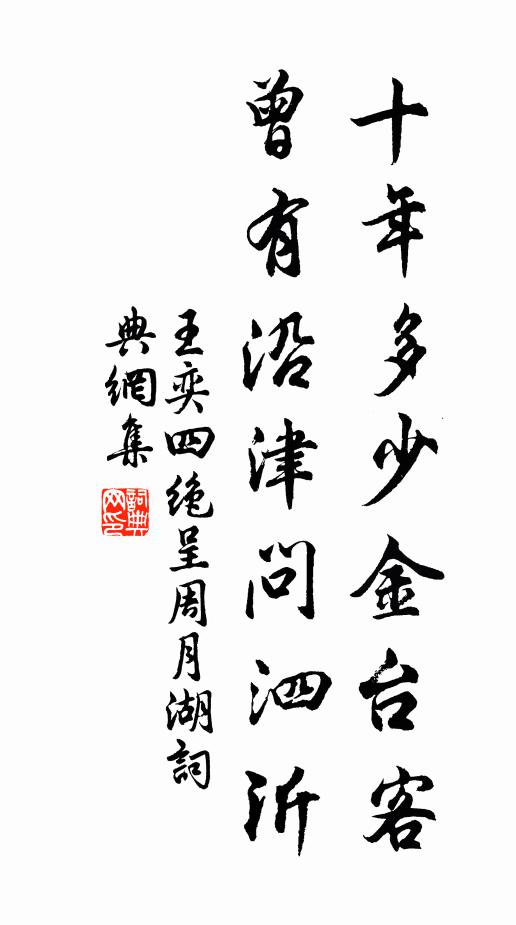 十年多少金台客
曾有沿津問泗沂
王奕四绝呈周月湖詞
典網集
詞典网印